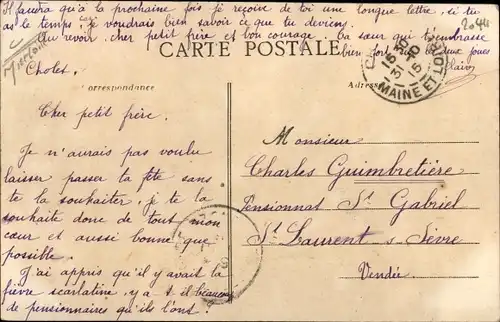 Il faudra qu'à la prochaine fois je reçoive de toi une longue lettre, si tu
as le temps car je voudrais bien savoir ce que tu deviens.
Au revoir cher petit frère et bon courage. Ta sœur qui t'embrasse
bien fort sur deux joues
Claire
CARTE POSTALE
2.044
Cholet,
Correspondance
Adresse
15 30
31 10
15
MAINE ET LOIRE
Cher petit frère,
Je n'aurais pas voulu
laisser passer ta fête sans
te la souhaiter, je te la
souhaite donc de tout mon
cœur et aussi bonne que
possible.
J'ai appris qu'il y avait la
fièvre scarlatine, y a t il beaucoup
de pensionnaires qu'ils l'ont?
Monsieur
Charles Guimbretière
Pensionnat St Gabriel
St Laurent s- Sèvre
Vendée